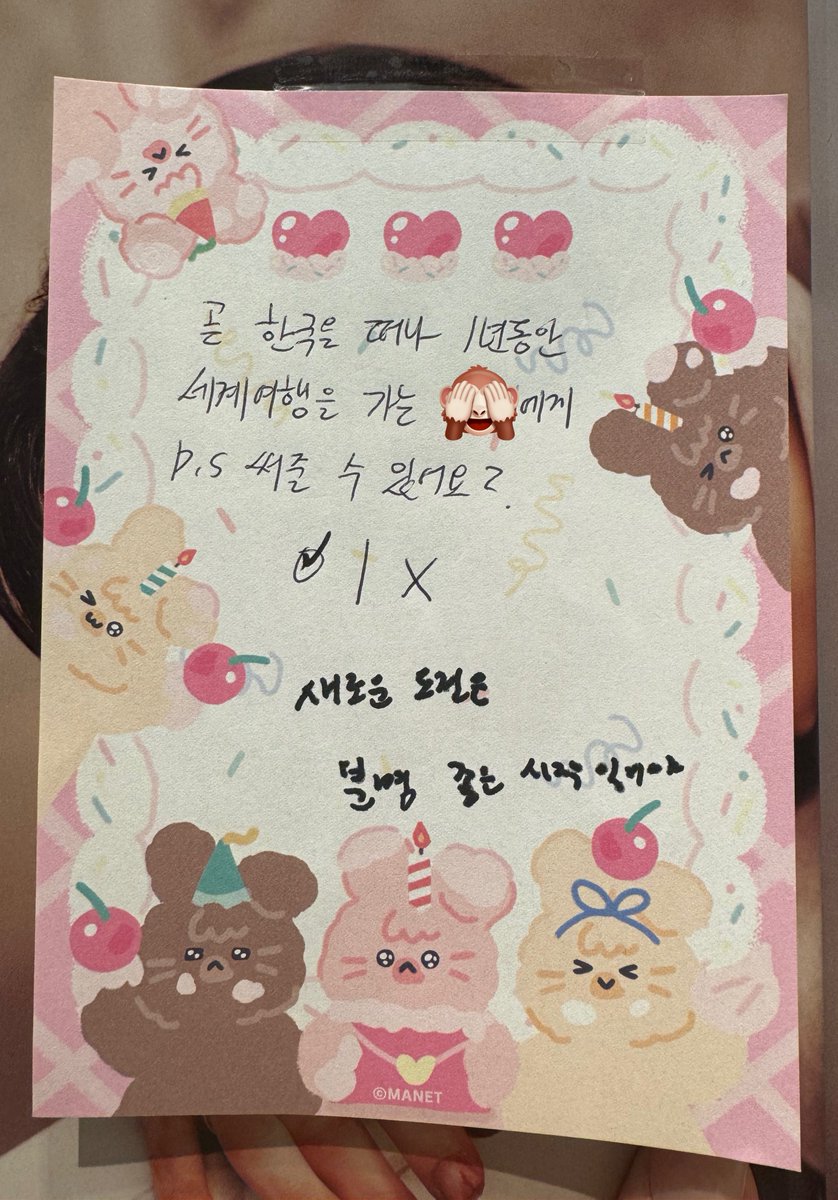 곧 한국을 떠나 1년동안
세계여행을 가는 에게
P.S 써줄 수 있어요?
O / X
새로운 도전은
분명 좋은 시작일거야
©MANET